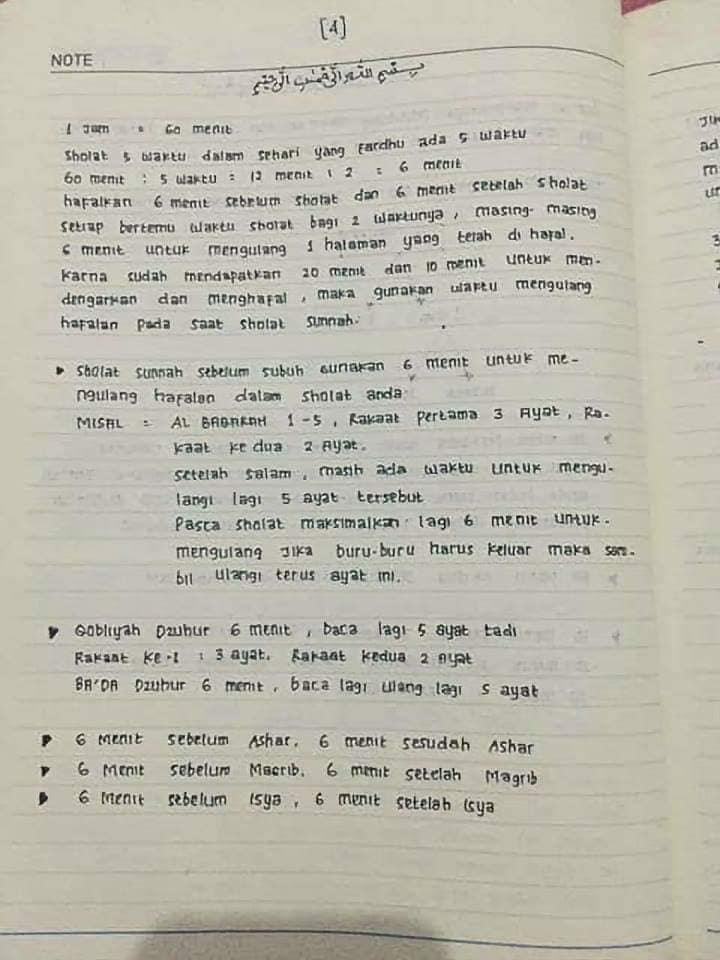 [4]
NOTE
بسم الله الرحمن الرحيم
1 Jam = 60 menit
Sholat 5 waktu dalam sehari yang Fardhu ada 5 waktu
60 menit : 5 waktu = 12 menit : 2 = 6 menit
hafalkan 6 menit sebelum sholat dan 6 menit setelah sholat
setiap bertemu waktu sholat bagi 2 waktunya, masing-masing
6 menit untuk mengulang 1 halaman yang telah di hafal.
Karna sudah mendapatkan 20 menit dan 10 menit untuk men-
dengarkan dan menghafal, maka gunakan waktu mengulang
hafalan pada saat sholat sunnah.
▸ Sholat sunnah sebelum subuh gunakan 6 menit untuk me-
ngulang hafalan dalam sholat anda
MISAL = AL BAQARAH 1-5, Rakaat pertama 3 Ayat, Ra-
kaat ke dua 2 Ayat.
setelah salam, masih ada waktu untuk mengu-
langi lagi 5 ayat tersebut
Pasca sholat maksimalkan lagi 6 menit untuk.
mengulang jika buru-buru harus keluar maka sam-
bil ulangi terus ayat ini.
▸ Qobliyah Dzuhur 6 menit, baca lagi 5 ayat tadi
Rakaat ke-1 : 3 ayat. Rakaat kedua 2 Ayat
BA'DA Dzuhur 6 menit, baca lagi ulang lagi 5 ayat
▸ 6 Menit sebelum Ashar. 6 menit sesudah Ashar
▸ 6 Menit sebelum Magrib. 6 menit setelah Magrib
▸ 6 Menit sebelum Isya, 6 menit setelah Isya